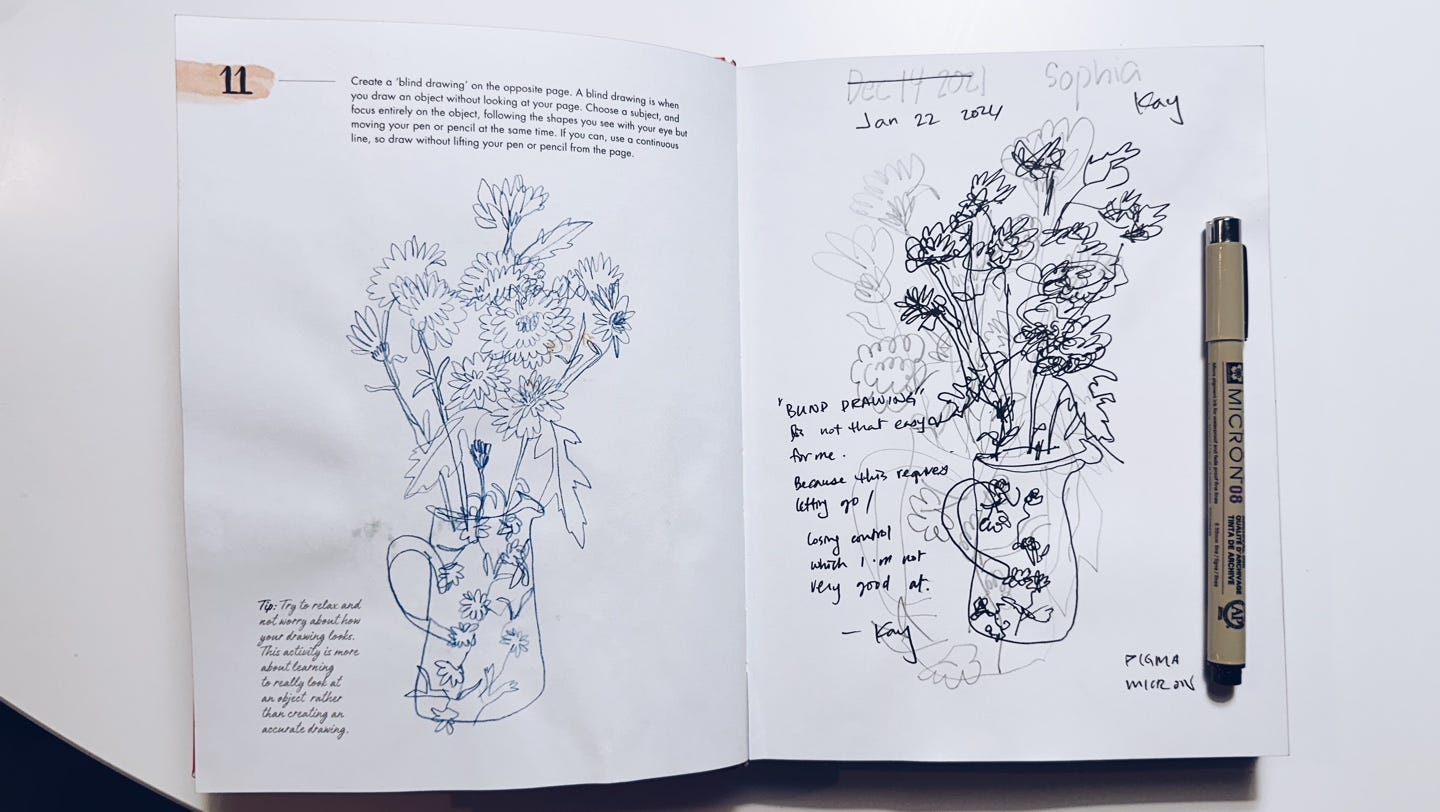 11
Create a 'blind drawing' on the opposite page. A blind drawing is when
you draw an object without looking at your page. Choose a subject, and
focus entirely on the object, following the shapes you see with your eye but
moving your pen or pencil at the same time. If you can, use a continuous
line, so draw without lifting your pen or pencil from the page.
Tip: Try to relax and
not worry about how
your drawing looks.
This activity is more
about learning
to really look at
an object rather
than creating an
accurate drawing.
Dec 14 2021 Sophia
Jan 22 2024 Kay
"BLIND DRAWING"
not that easy
for me.
Because this requires
letting go /
losing control
which I'm not
very good at.
— Kay
PIGMA
MICRON
MICRON 08
QUALITÉ D'ARCHIVAGE
TINTA DE ARCHIVE
AP